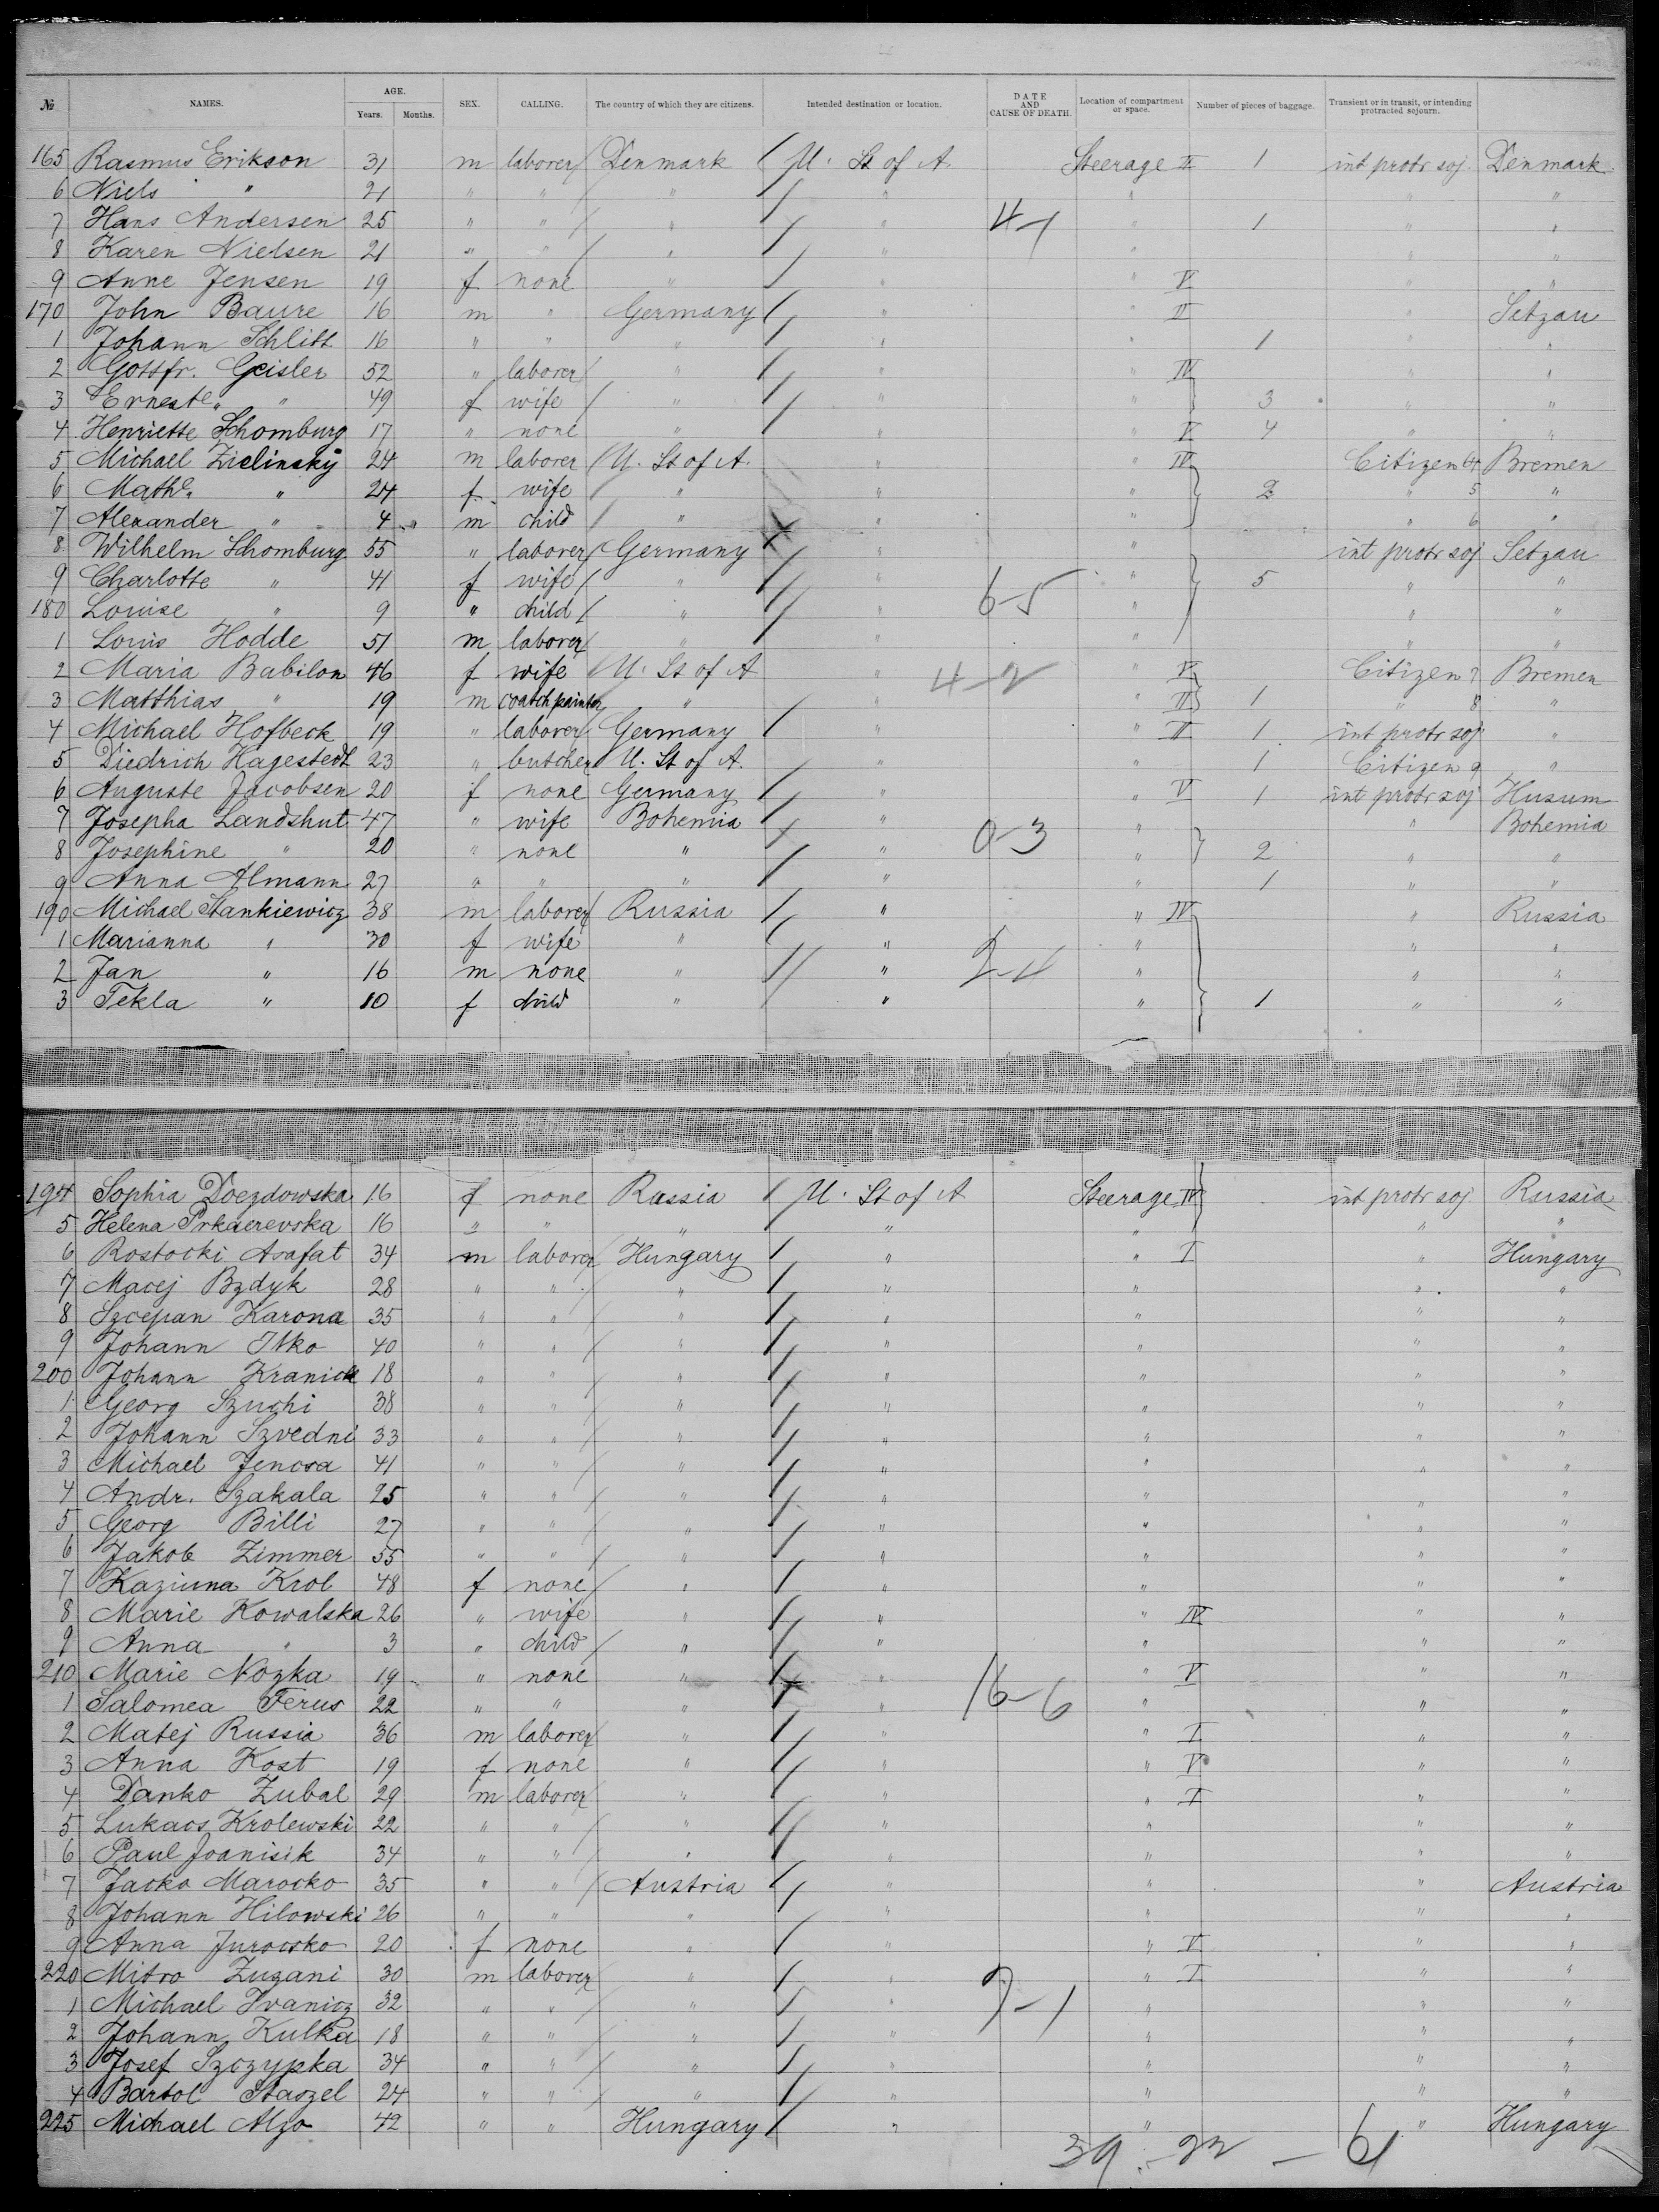 № NAMES. AGE. Years. Months. SEX. CALLING. The country of which they are citizens. Intended destination or location. DATE AND CAUSE OF DEATH. Location of compartment or space. Number of pieces of baggage. Transient or in transit, or intending protracted sojourn.
165 Rasmus Erikson 31 m laborer Denmark U. St of A. Steerage II 1 int protr soj. Denmark
6 Niels " 21 " " " " " " "
7 Hans Andersen 25 " " " " 4-1 " 1 " "
8 Karen Nielsen 21 " " " " " " "
9 Anne Jensen 19 f none " " " V " "
170 John Baure 16 m " Germany " " II " Setzau
1 Johann Schlitt 16 " " " " " 1 " "
2 Gottfr. Geisler 52 " laborer " " " IV " "
3 Erneste. " 49 f wife " " " 3 " "
4 Henriette Schomburg 17 " none " " " V 4 " "
5 Michael Zielinsky 24 m laborer U. St of A. " " IV Citizen 4 Bremen
6 Mathe. " 24 f wife " " " 2 " 5 "
7 Alexander " 4 " m child " " " " 6 "
8 Wilhelm Schomburg 55 " laborer Germany " " int protr soj Setzau
9 Charlotte " 41 f wife " " 6-5 " 5 " "
180 Louise " 9 " child " " " " "
1 Louis Hodde 51 m laborer " " " " "
2 Maria Babilon 46 f wife U. St of A " 4-2 " V Citizen 7 Bremen
3 Matthias " 19 m coatchpainter " " " II 1 " 8 "
4 Michael Hofbeck 19 " laborer Germany " " II 1 int protr soj "
5 Diedrich Hagestedt 23 " butcher U. St of A. " " 1 Citizen 9 "
6 Auguste Jacobsen 20 f none Germany " " V 1 int protr soj Husum
7 Josepha Landshut 47 " wife Bohemia " 0-3 " " Bohemia
8 Josephine " 20 " none " " " 2 " "
9 Anna Almann 27 " " " " " 1 " "
190 Michael Stankiewicz 38 m laborer Russia " " IV " Russia
1 Marianna " 30 f wife " " " " "
2 Jan " 16 m none " " " " "
3 Tekla " 10 f child " " " 1 " "
194 Sophia Doezdowska 16 f none Russia U. St of A Steerage IV int protr soj. Russia
5 Helena Prkaerevska 16 " " " " " " "
6 Rostocki Asafat 34 m laborer Hungary " " I " Hungary
7 Macej Bzdyk 28 " " " " " " "
8 Szcepan Karona 35 " " " " " " "
9 Johann Itko 40 " " " " " " "
200 Johann Kranick 18 " " " " " " "
1 Georg Szuchi 38 " " " " " " "
2 Johann Szvedni 33 " " " " " " "
3 Michael Jencsa 41 " " " " " " "
4 Andr. Szakala 25 " " " " " " "
5 Georg Billi 27 " " " " " " "
6 Jakob Zimmer 55 " " " " " " "
7 Kaziuna Krol 48 f none " " " " "
8 Marie Kowalska 26 " wife " " " IV " "
9 Anna " 3 " child " " " " "
210 Marie Nozka 19 " none " " " V " "
1 Salomea Ferus 22 " " " " 16-6 " " "
2 Matej Russia 36 m laborer " " " I " "
3 Anna Kost 19 f none " " " V " "
4 Danko Zubal 29 m laborer " " " I " "
5 Lukacs Krolewski 22 " " " " " " "
6 Paul Joanisik 34 " " " " " " "
7 Jacko Marocko 35 " " Austria " " " Austria
8 Johann Hilowski 26 " " " " " " "
9 Anna Jurocsko 20 f none " " " V " "
220 Mitro Zugani 30 m laborer " " " I " "
1 Michael Ivanicz 32 " " " " " " "
2 Johann Kulka 18 " " " " " " "
3 Josef Szczypka 34 " " " " " " "
4 Bartol Staszel 24 " " " " " " "
225 Michael Alzo 42 " " Hungary " " " Hungary
39 - 22 - 61